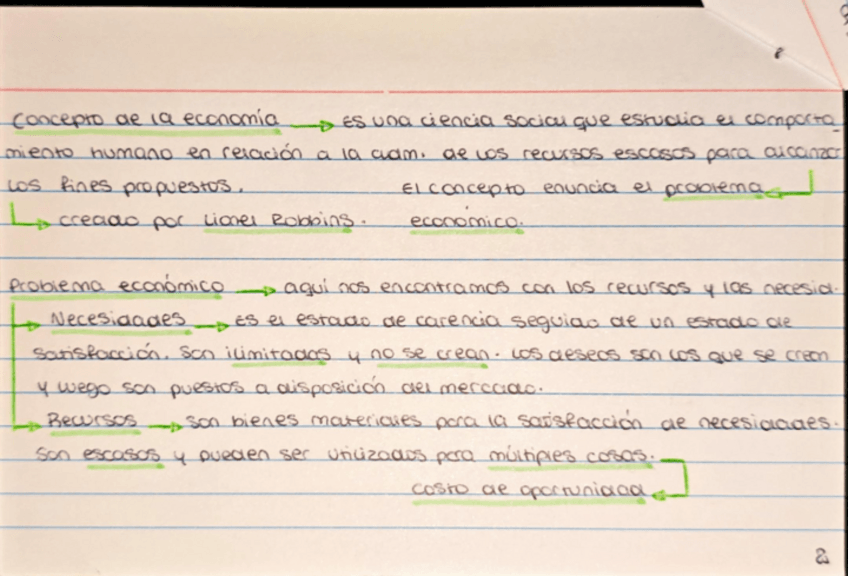 Concepto de la economía → es una ciencia social que estudia el comporta-
miento humano en relación a la adm. de los recursos escasos para alcanzar
los fines propuestos. El concepto enuncia el problema
→ creado por Lionel Robbins. económico.
Problema económico → aquí nos encontramos con los recursos y las necesid.
→ Necesidades → es el estado de carencia seguido de un estado de
satisfacción. Son ilimitados y no se crean. Los deseos son los que se crean
y luego son puestos a disposición del mercado.
→ Recursos → son bienes materiales para la satisfacción de necesidades.
Son escasos y pueden ser utilizados para múltiples cosas.
costo de oportunidad
2